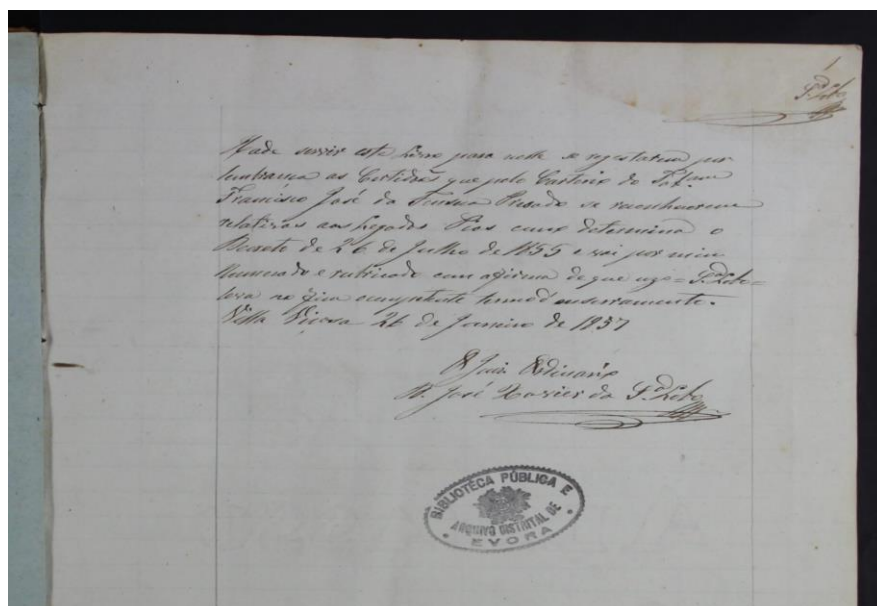 1
S.ª Lobo
Hade servir este Livro para nelle se registarem por
lembrança as Certidoes que pelo Cartorio do Tabam
Francisco José da
relativas aos Legados Pios como determina o
Decreto de 26 de Julho de 1855 e vai por mim
Numerado e rubricado com a firma de que uzo = S.ª Lobo =
leva no fim competente termo d'enserramento.
Villa Viçosa 26 de Janeiro de 1857
O Juiz Ordinario
José Xavier da S.ª Lobo
BIBLIOTECA PÚBLICA E
ARQUIVO DISTRITAL DE
EVORA